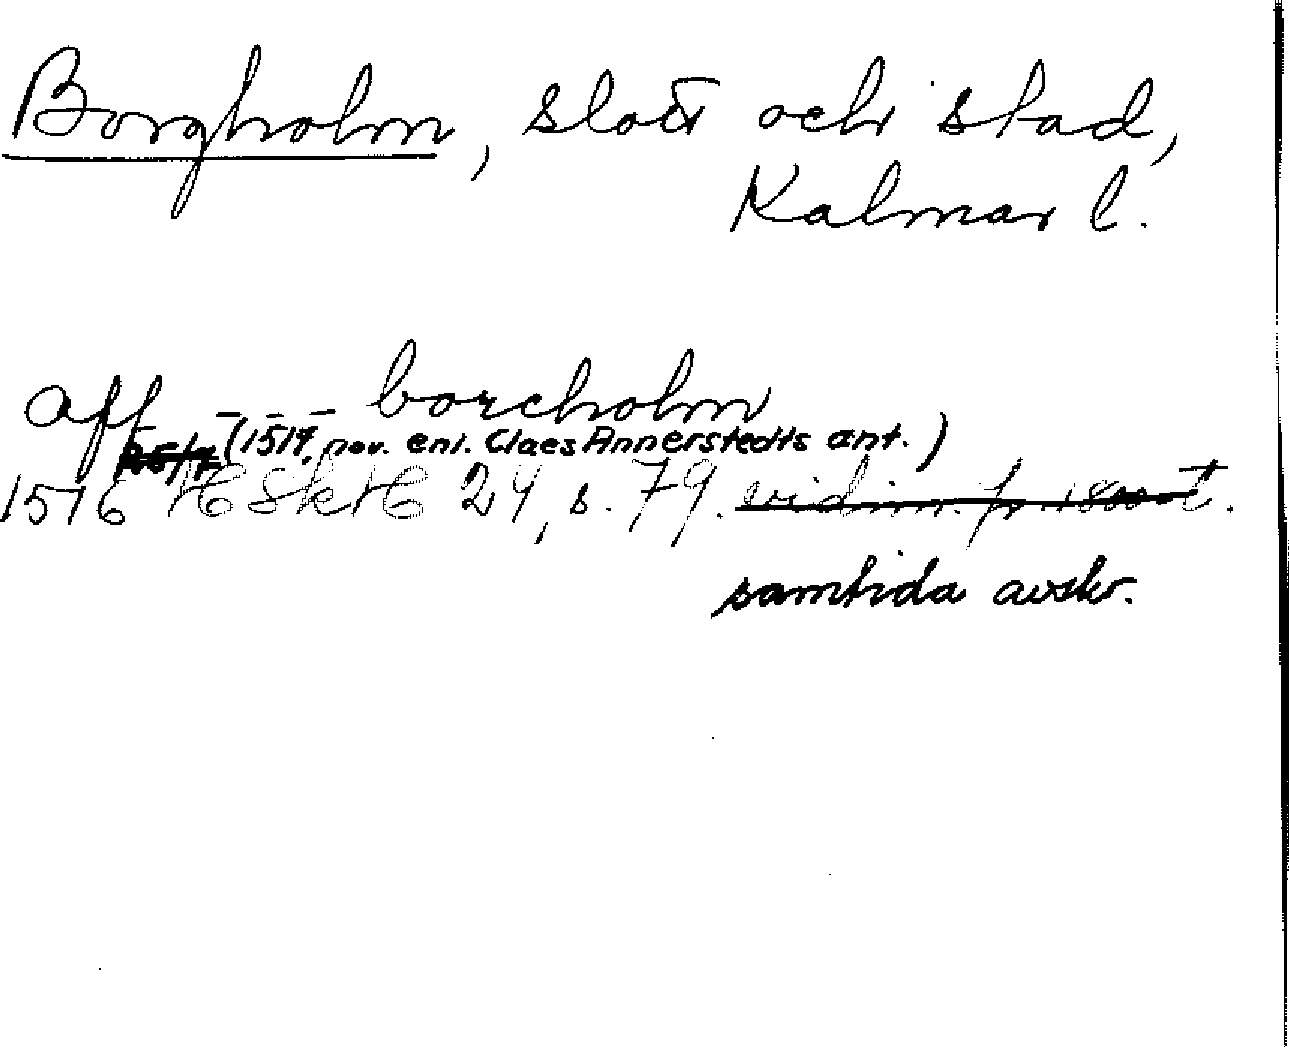 Borgholm, slott och stad,
Kalmar l.
aff _ _ _ borcholm
(1517, nov. enl. Claes Annerstedts ant.)
1516 HSkH 24, s. 79. vidim. fr. 1800-t.
samtida avskr.